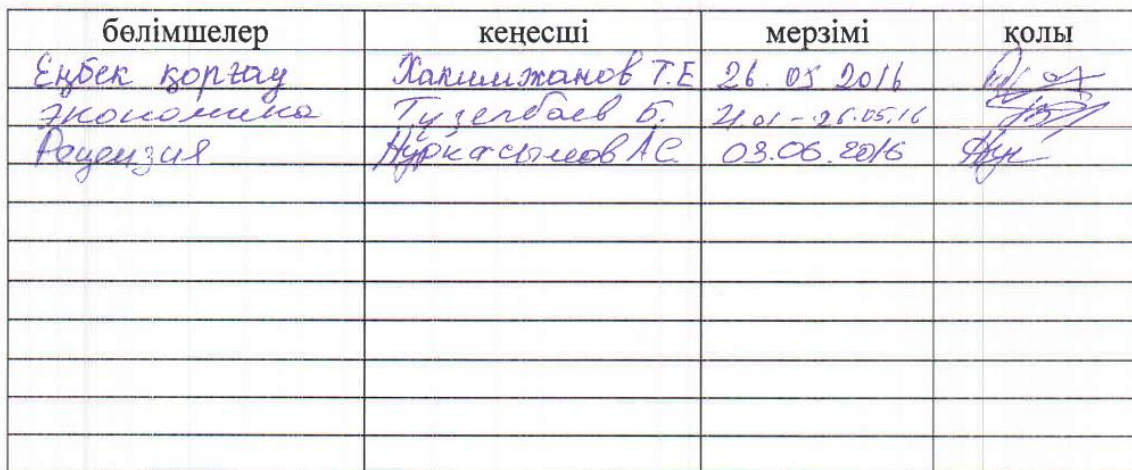 бөлімшелер кеңесші мерзімі қолы
Еңбек қорғау Хакимжанов Т.Е 26.05 2016
экономика Тузелбаев Б. 21.01-26.05.16
Рецензия Нуркасымов А.С. 03.06.2016